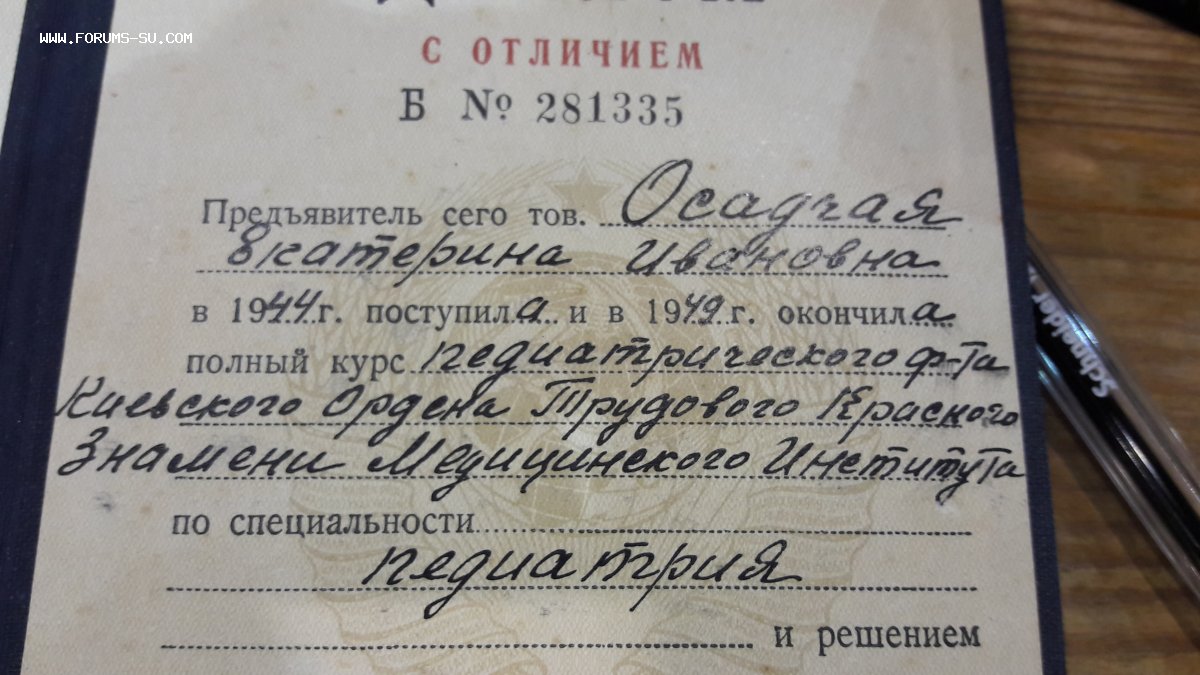 WWW.FORUMS-SU.COM
С ОТЛИЧИЕМ
Б № 281335
Предъявитель сего тов. Осадчая
Екатерина Ивановна
в 1944 г. поступила и в 1949 г. окончила
полный курс педиатрического ф-та
Киевского Ордена Трудового Красного
Знамени Медицинского Института
по специальности
педиатрия
и решением
Schneider